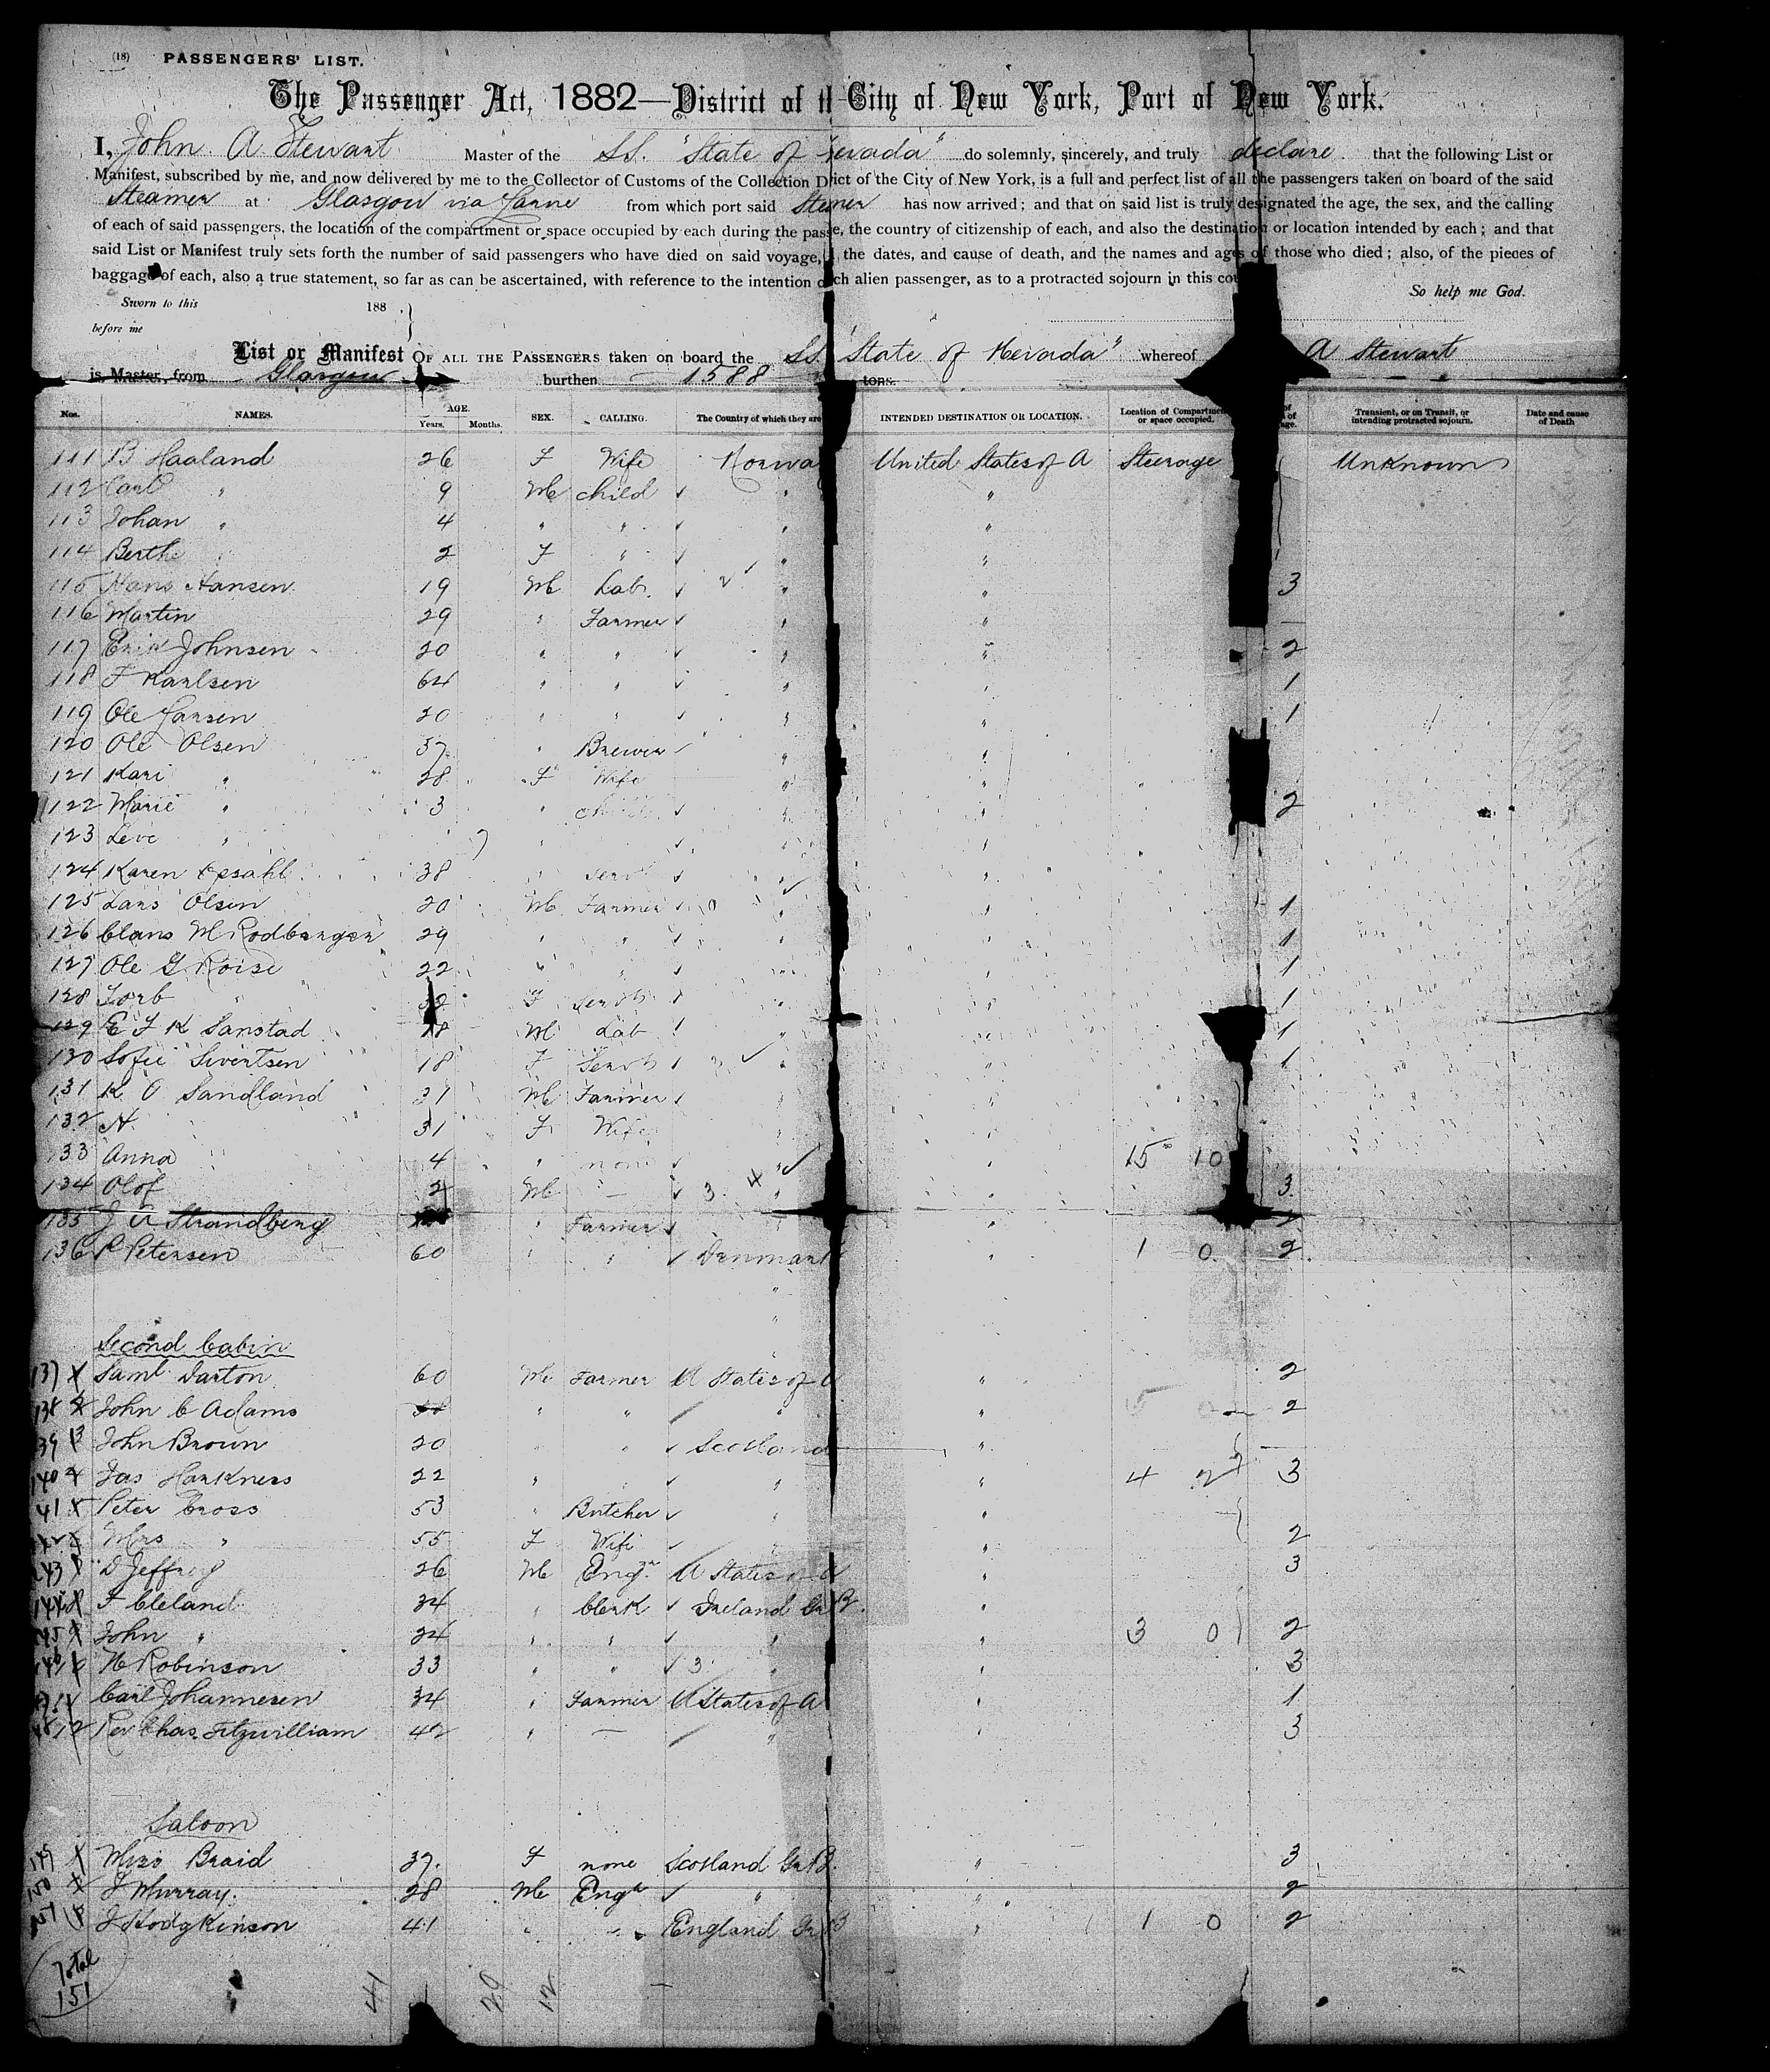 (18) PASSENGERS' LIST.
The Passenger Act, 1882—District of th City of New York, Port of New York.
I, John A Stewart Master of the SS. "State of Nevada" do solemnly, sincerely, and truly declare that the following List or
Manifest, subscribed by me, and now delivered by me to the Collector of Customs of the Collection D rict of the City of New York, is a full and perfect list of all the passengers taken on board of the said
Steamer at Glasgow via Larne from which port said Steamer has now arrived; and that on said list is truly designated the age, the sex, and the calling
of each of said passengers, the location of the compartment or space occupied by each during the pass e, the country of citizenship of each, and also the destination or location intended by each; and that
said List or Manifest truly sets forth the number of said passengers who have died on said voyage, the dates, and cause of death, and the names and ages of those who died; also, of the pieces of
baggage of each, also a true statement, so far as can be ascertained, with reference to the intention o ch alien passenger, as to a protracted sojourn in this cou
Sworn to this 188 So help me God.
before me
List or Manifest OF ALL THE PASSENGERS taken on board the SS "State of Nevada" whereof A Stewart
is Master, from Glasgow burthen 1588 tons.
Nos. NAMES. AGE. Years. Months. SEX. CALLING. The Country of which they are INTENDED DESTINATION OR LOCATION. Location of Compartmen or space occupied. of of age. Transient, or on Transit, or intending protracted sojourn. Date and cause of Death
111 B Haaland 26 F Wife Norwa United States of A Steerage Unknown
112 Carl " 9 M child ✓ " "
113 Johan " 4 " " ✓ " "
114 Berthe 2 F " ✓ " "
115 Hans Hansen 19 M Lab. ✓ 2 ✓ " " 3
116 Martin 29 " Farmer ✓ " " —
117 Erik Johnsen 20 " " ✓ " " 2
118 F Karlsen 64 " " ✓ " " 1
119 Ole Larsen 20 " " ✓ " " 1
120 Ole Olsen 37 " Brewer ✓ " "
121 Kari " 28 F Wife " "
122 Marie " 3 " child ✓ " " 2
123 Leve " 7 " ✓ " "
124 Karen Opsahl 38 " Servt ✓ " "
125 Lars Olsen 20 M Farmer ✓ " " 1
126 Clans M Rodbergen 29 " " ✓ " " 1
127 Ole G Roise 22 " " ✓ " " 1
128 Torb " F Servt ✓ " " 1
129 E F K Sanstad 18 M Lab ✓ " " 1
130 Sofie Sivertsen 18 F Servt ✓ ✓ " " 1
131 K O Sandland 31 M Farmer ✓ " "
132 A " 31 F Wife " "
133 Anna 4 " none ✓ " ✓ " 15 10
134 Olof 2 M — ✓ 3 4 " " 3
135 J A Strandberg " Farmer ✓ "
136 P Petersen 60 " " ✓ Denmark " 1 0 2
Second Cabin
137 Saml Darton 60 M Farmer U States of A " 2
138 John C Adams " " ✓ " " 2
139 John Brown 20 " " ✓ Scotland " —
140 Jas Harkness 22 " ✓ " " 4 2 3
141 Peter Cross 53 " Butcher ✓ " "
142 Mrs " 55 F Wife ✓ " " 2
143 D Jeffrey 26 M Engr U States of A " 3
144 F Cleland 34 " Clerk ✓ Ireland Gt B. "
145 John " 24 " " ✓ " " 3 0 2
146 H Robinson 33 " " ✓ 3 " " 3
147 Carl Johannesen 34 " Farmer U States of A " 1
148 Rev Chas. Fitzwilliam 42 " — ✓ " " 3
Saloon
149 Miss Braid 37. F none Scotland Gt B. " 3
150 J Murray. 28 M Engr ✓ " " 2
151 J Hodgkinson 41 " " England Gt B " 1 0 2
Total
151
41 29 12